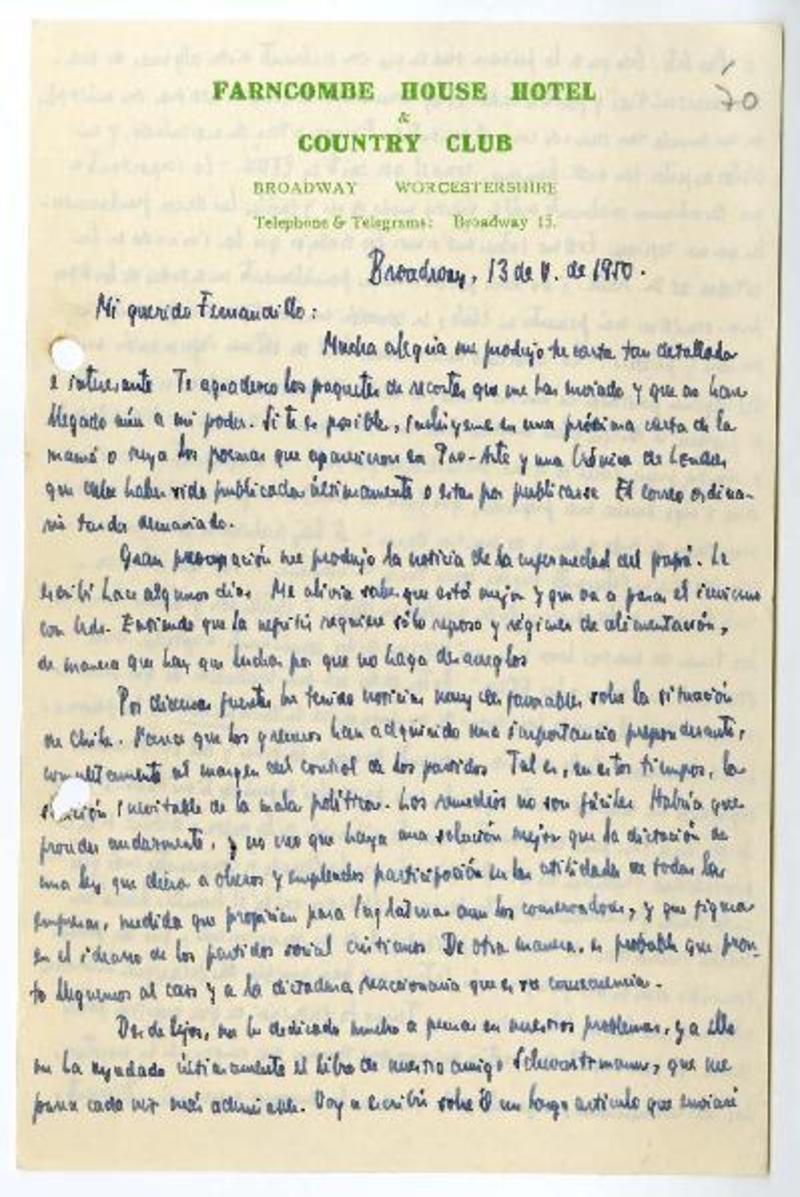 70
FARNCOMBE HOUSE HOTEL
&
COUNTRY CLUB
BROADWAY WORCESTERSHIRE
Telephone & Telegrams: Broadway 15.
Broadway, 13 de V. de 1950.
Mi querido Fernandillo:
Mucha alegria me produjo tu carta tan detallada
e interesante Te agradezco los paquetes de recortes que me has enviado y que no han
llegado aún a mi poder. Si te es posible, inclúyeme en una próxima carta de la
mamá o suya los poemas que aparecieron en Pro-Arte y una Crónica de Londres
que debe haber sido publicada últimamente o estar por publicarse El correo ordina-
rio tarda demasiado.
Gran preocupación me produjo la noticia de la enfermedad del papá. Le
escribí hace algunos días Me alivia saber que está mejor y que va a pasar el invierno
con Uds. Entiendo que la nefritis requiere sólo reposo y régimen de alimentación,
de manera que hay que luchar por que no haga desarreglos
Por diversas fuentes he tenido noticias muy desfavorables sobre la situación
de Chile. Parece que los gremios han adquirido una importancia preponderante,
completamente al margen del control de los partidos Tal es, en estos tiempos, la
inevitable de la mala política. Los remedios no son fáciles Habría que
proceder audazmente, y no veo que haya una solución mejor que la dictación de
una ley que diera a obreros y empleados participación en las utilidades de todas las
empresas, medida que propician para Inglaterra aun los conservadores, y que figura
en el ideario de los partidos social cristianos De otra manera, es probable que pron-
to lleguemos al caos y a la dictadura reaccionaria que es su consecuencia.
Desde lejos, me he dedicado mucho a pensar en nuestros problemas, y a ello
me ha ayudado últimamente el libro de nuestro amigo Schwartzmann, que me
parece cada vez más admirable. Voy a escribir sobre él un largo artículo que enviaré